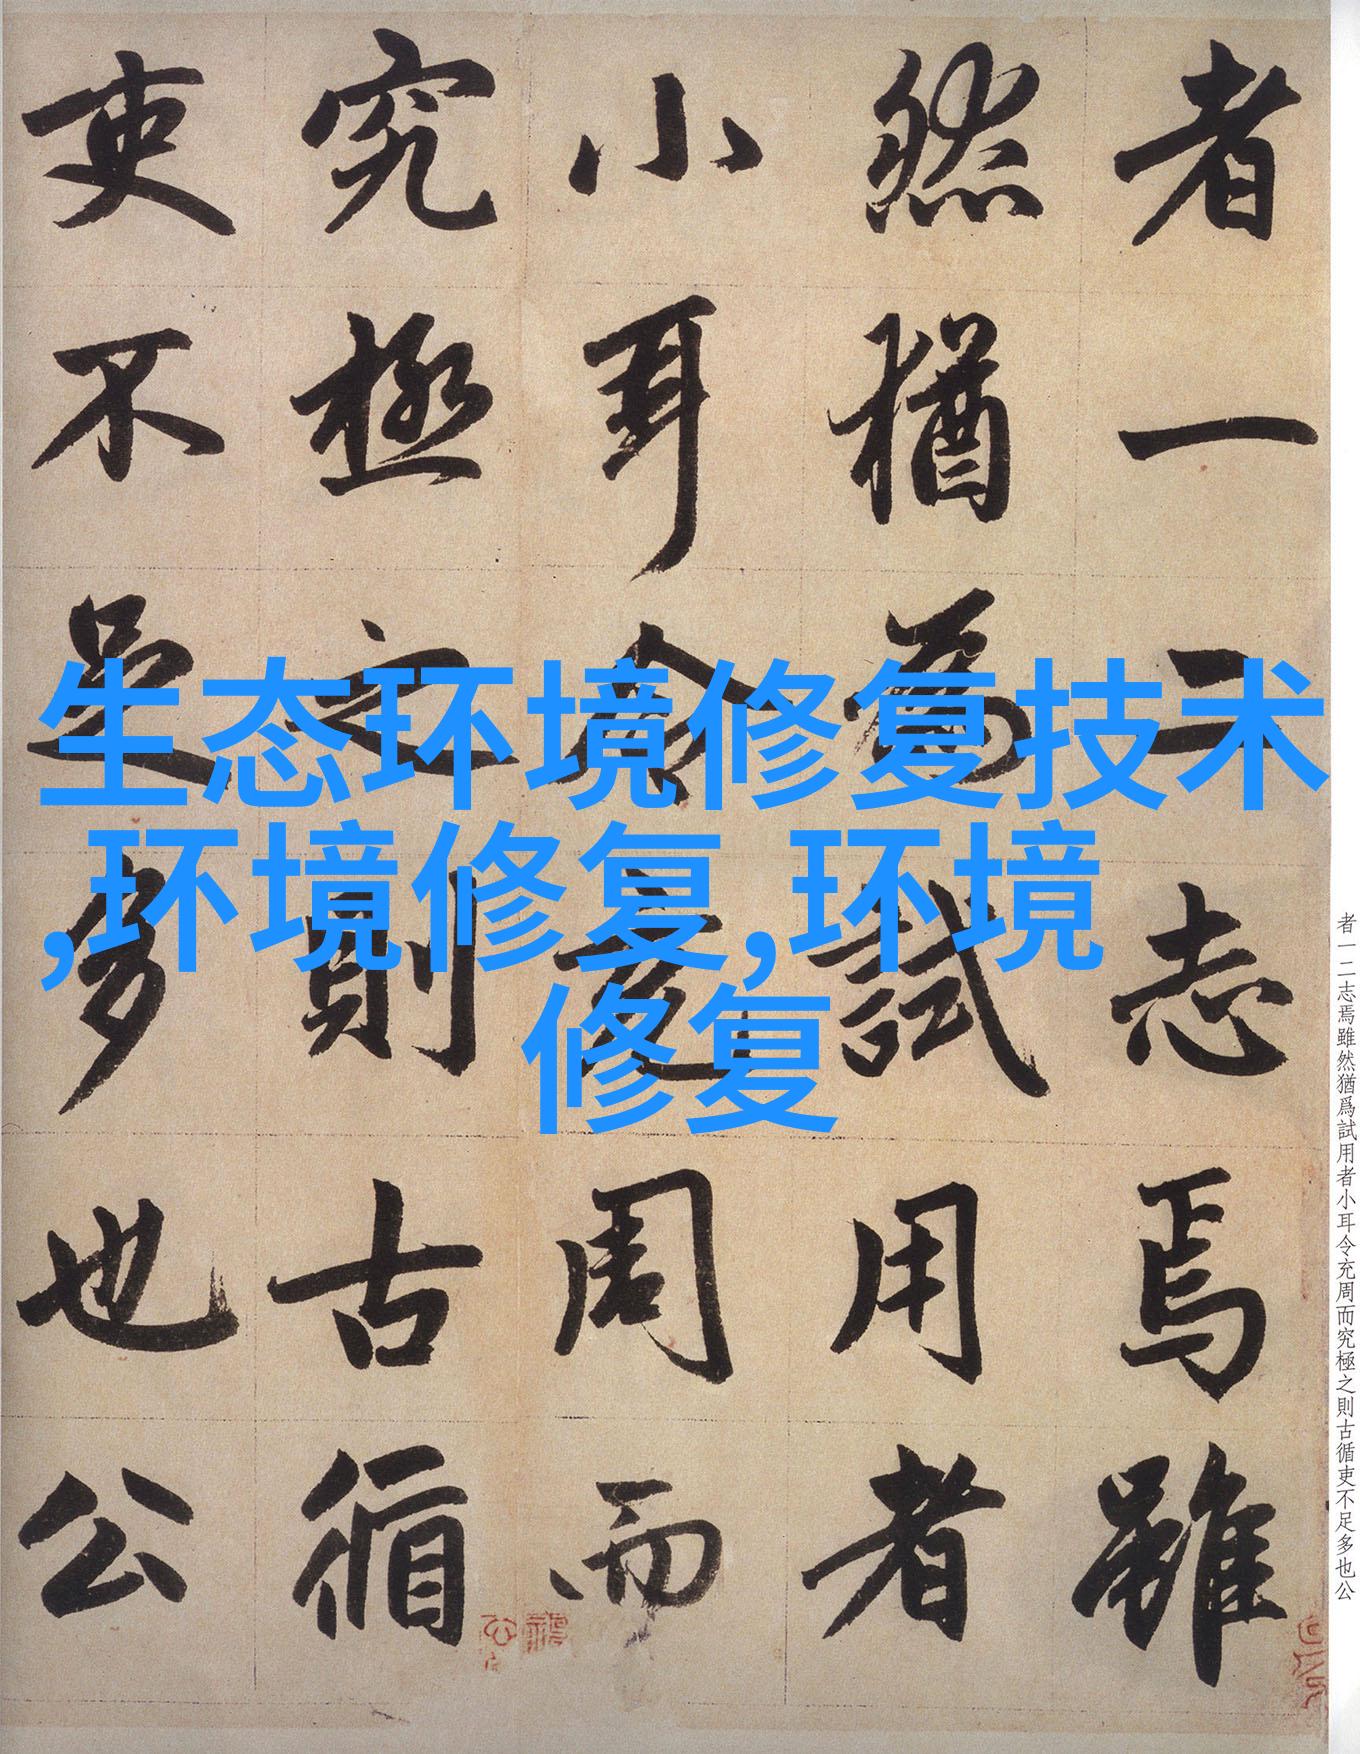 者一二志焉雖
然猶爲試用者
小耳令充周而
究極之則古循
吏不足多也公
生态环境修复技术
,环境修复,环境
修复
者一二志焉雖然猶爲試用者小耳令充周而究極之則古循吏不足多也公